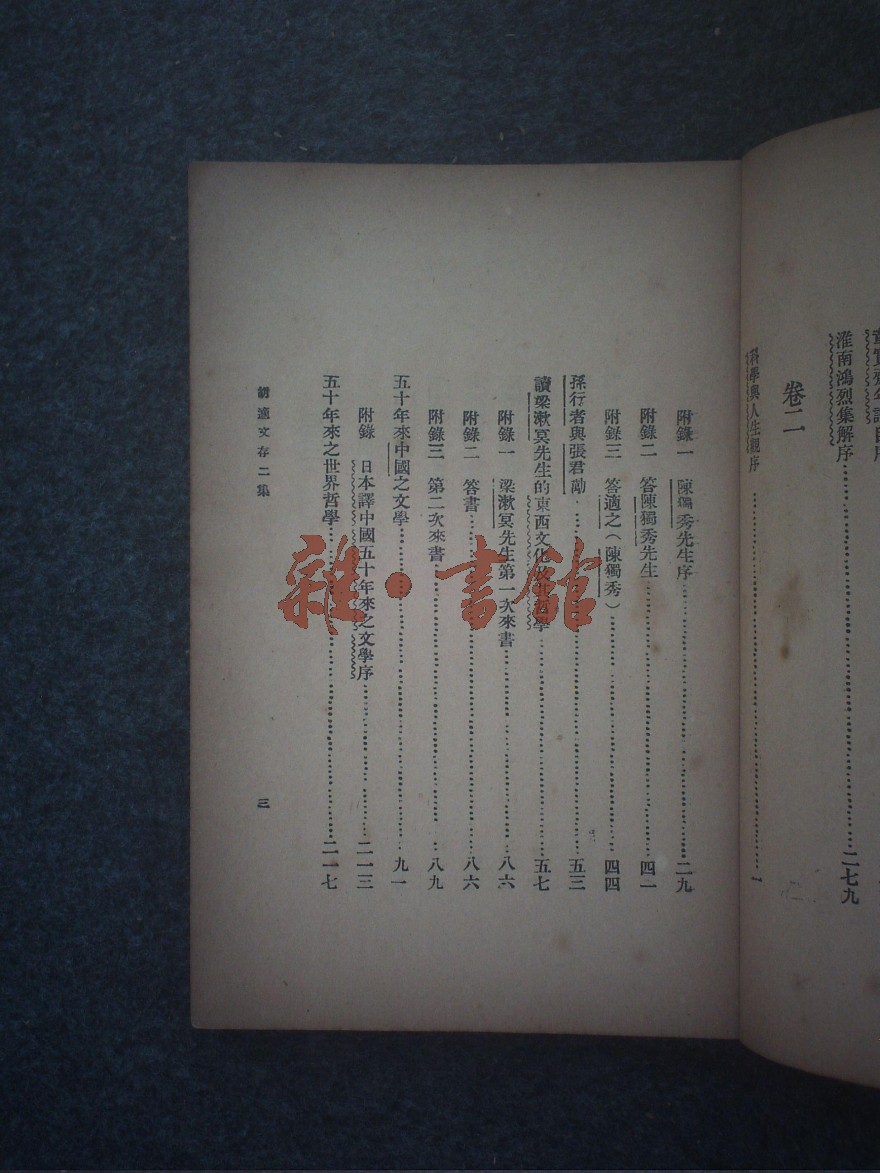 淮南鴻烈集解序……二七九
卷二
科學與人生觀序……一
附錄一 陳獨秀先生序……二九
附錄二 答陳獨秀先生……四二
附錄三 答適之(陳獨秀)……四四
孫行者與張君勱……五三
讀梁漱冥先生的東西文化及其哲學……五七
附錄一 梁漱冥先生第一次來書……八六
附錄二 答書……八六
附錄三 第二次來書……八九
五十年來中國之文學……九一
附錄 日本譯中國五十年來之文學序……二一三
五十年來之世界哲學……二一七
胡適文存二集
三
雜·書館